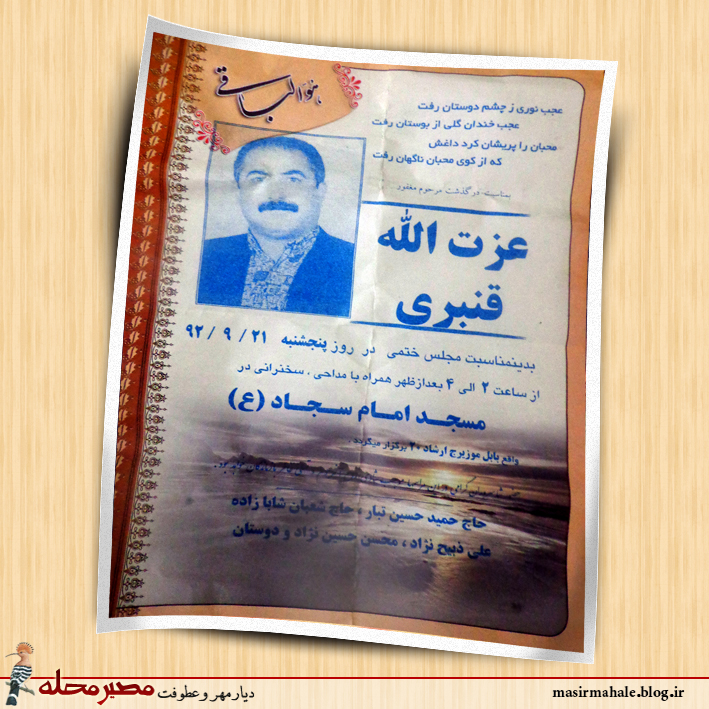 هوالباقی
عجب نوری ز چشم دوستان رفت
عجب خندان گلی از بوستان رفت
محبان را پریشان کرد داغش
که از کوی محبان ناگهان رفت
بمناسبت درگذشت مرحوم مغفور
عزت الله
قنبری
بدینمناسبت مجلس ختمی در روز پنجشنبه ۹۲ / ۹ / ۲۱
از ساعت ۲ الی ۴ بعدازظهر همراه با مداحی ، سخنرانی در
مسجد امام سجاد (ع)
واقع بابل موزیرج ارشاد ۲۰ برگزار میگردد .
حاج حمید حسین تبار ، حاج شعبان شابا زاده
علی ذبیح نژاد ، محسن حسین نژاد و دوستان
مصیرمحله دیار مهر و عطوفت
masirmahale.blog.ir